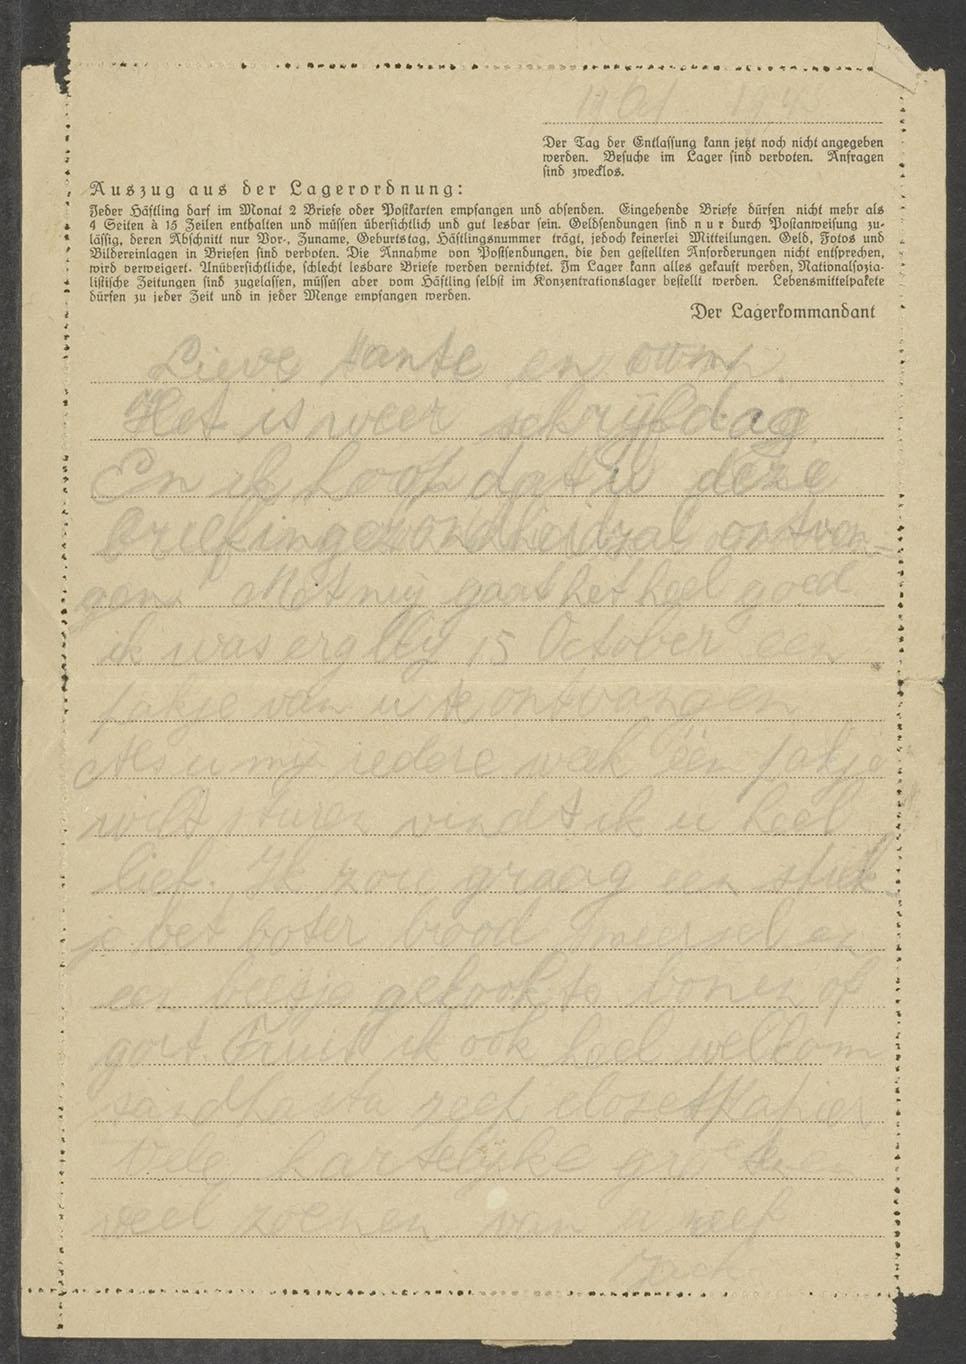 19 Oct 194
Der Tag der Entlassung kann jetzt noch nicht angegeben
werden. Besuche im Lager sind verboten. Anfragen
sind zwecklos.
Auszug aus der Lagerordnung:
Jeder Häftling darf im Monat 2 Briefe oder Postkarten empfangen und absenden. Eingehende Briefe dürfen nicht mehr als
4 Seiten à 15 Zeilen enthalten und müssen übersichtlich und gut lesbar sein. Geldsendungen sind nur durch Postanweisung zu-
lässig, deren Abschnitt nur Vor-, Zuname, Geburtstag, Häftlingsnummer trägt, jedoch keinerlei Mitteilungen. Geld, Fotos und
Bildereinlagen in Briefen sind verboten. Die Annahme von Postsendungen, die den gestellten Anforderungen nicht entsprechen,
wird verweigert. Unübersichtliche, schlecht lesbare Briefe werden vernichtet. Im Lager kann alles gekauft werden, Nationalsozia-
listische Zeitungen sind zugelassen, müssen aber vom Häftling selbst im Konzentrationslager bestellt werden. Lebensmittelpakete
dürfen zu jeder Zeit und in jeder Menge empfangen werden.
Der Lagerkommandant
Lieve tante en oom.
Het is weer schrijfdag.
En ik hoop dat u deze
brief in gezondheid zal ontvan=
gen. Met mij gaat het heel goed
ik was erg blij 15 October een
pakje van u te ontvangen
Als u mij iedere week één pakje
wilt sturen vindt ik u heel
lief. Ik zou graag een stuk-
je vet boter brood smeersel en
een beetje gekookte bonen of
gort. Fruit ik ook heel welkom
tandpasta zeep closetpapier
Vele hartelijke groeten en
veel zoenen van u neef